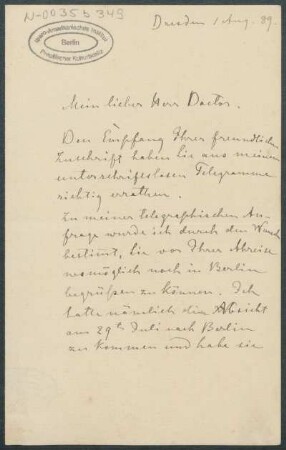 N-0035 b 349
Ibero-Amerikanisches Institut
Berlin
Preußischer Kulturbesitz
Dresden 1 Aug. 89.
Mein lieber Herr Doctor.
Den Empfang Ihrer freundlichen
Zuschrift haben Sie aus meinem
unterschriftslosen Telegramme
richtig errathen.
Zu meiner telegraphischen An-
frage wurde ich durch den Wunsch
bestimt, Sie vor Ihrer Abreise
womöglich noch in Berlin
begrüßen zu können. Ich
hatte nämlich die Absicht
am 29ten Juli nach Berlin
zu kommen und habe sie